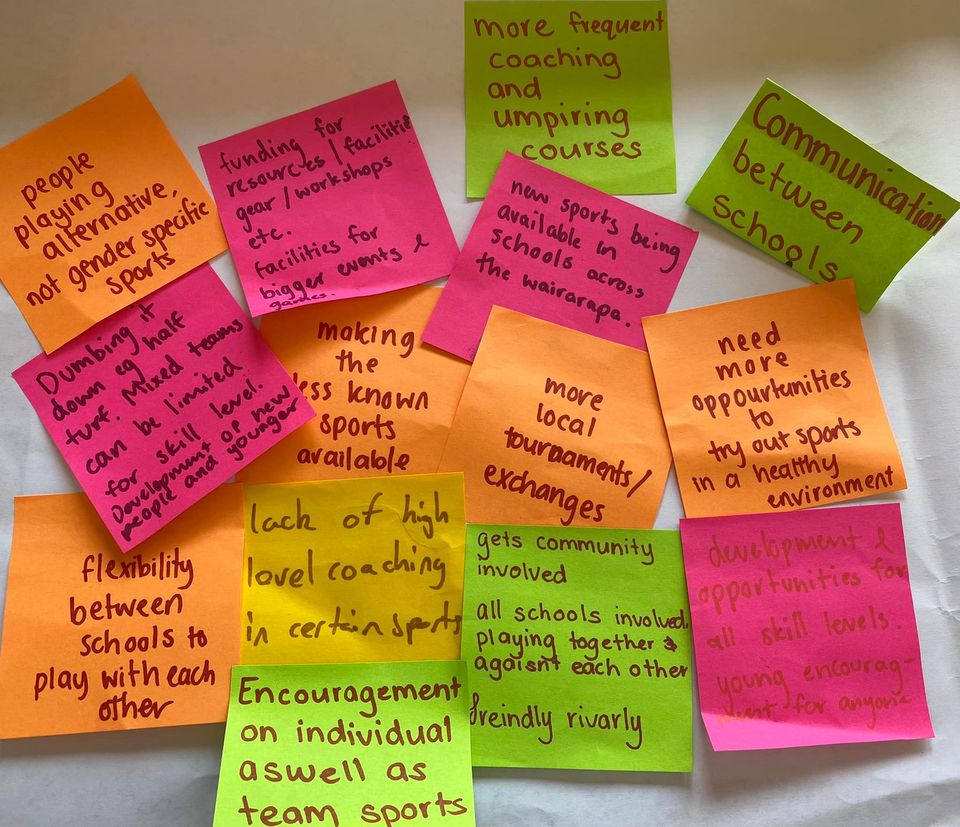 more frequent
coaching
and
umpiring
courses
people
playing
alternative,
not gender specific
sports
funding for
resources / facilities
gear / workshops
etc.
facilities for
bigger events &
games.
new sports being
available in
schools across
the wairarapa.
Communication
between
schools
Dumbing it
down eg half
turf. Mixed teams
can be limited
for skill level.
Development of new
people and younger
making
the
less known
sports
available
more
local
tournaments/
exchanges
need
more
oppourtunities
to
try out sports
in a healthy
environment
flexibility
between
schools to
play with each
other
lack of high
level coaching
in certain sports
gets community
involved
all schools involved,
playing together &
agaisnt each other
freindly rivarly
development &
opportunities for
all skill levels.
young encourag-
ment for anyone
Encouragement
on individual
aswell as
team sports